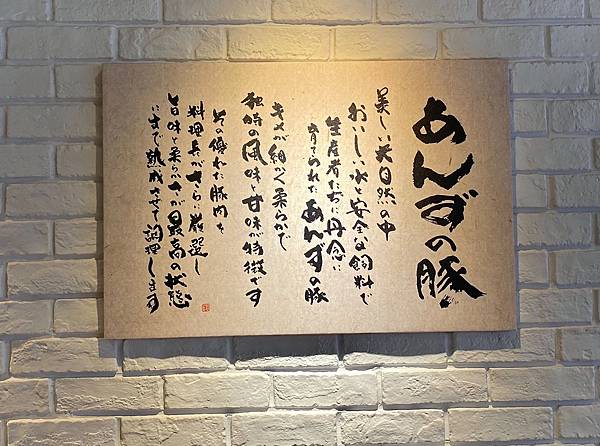 あんずの豚
美しい大自然の中
おいしい水と安全な飼料で
生産者たちに丹念に
育てられたあんずの豚
キメが細かく柔らかで
独特の風味と甘味が特徴です
その優れた豚肉を
料理長がさらに厳選し
旨味と柔らかさが最高の状態
にまで熟成させて調理します